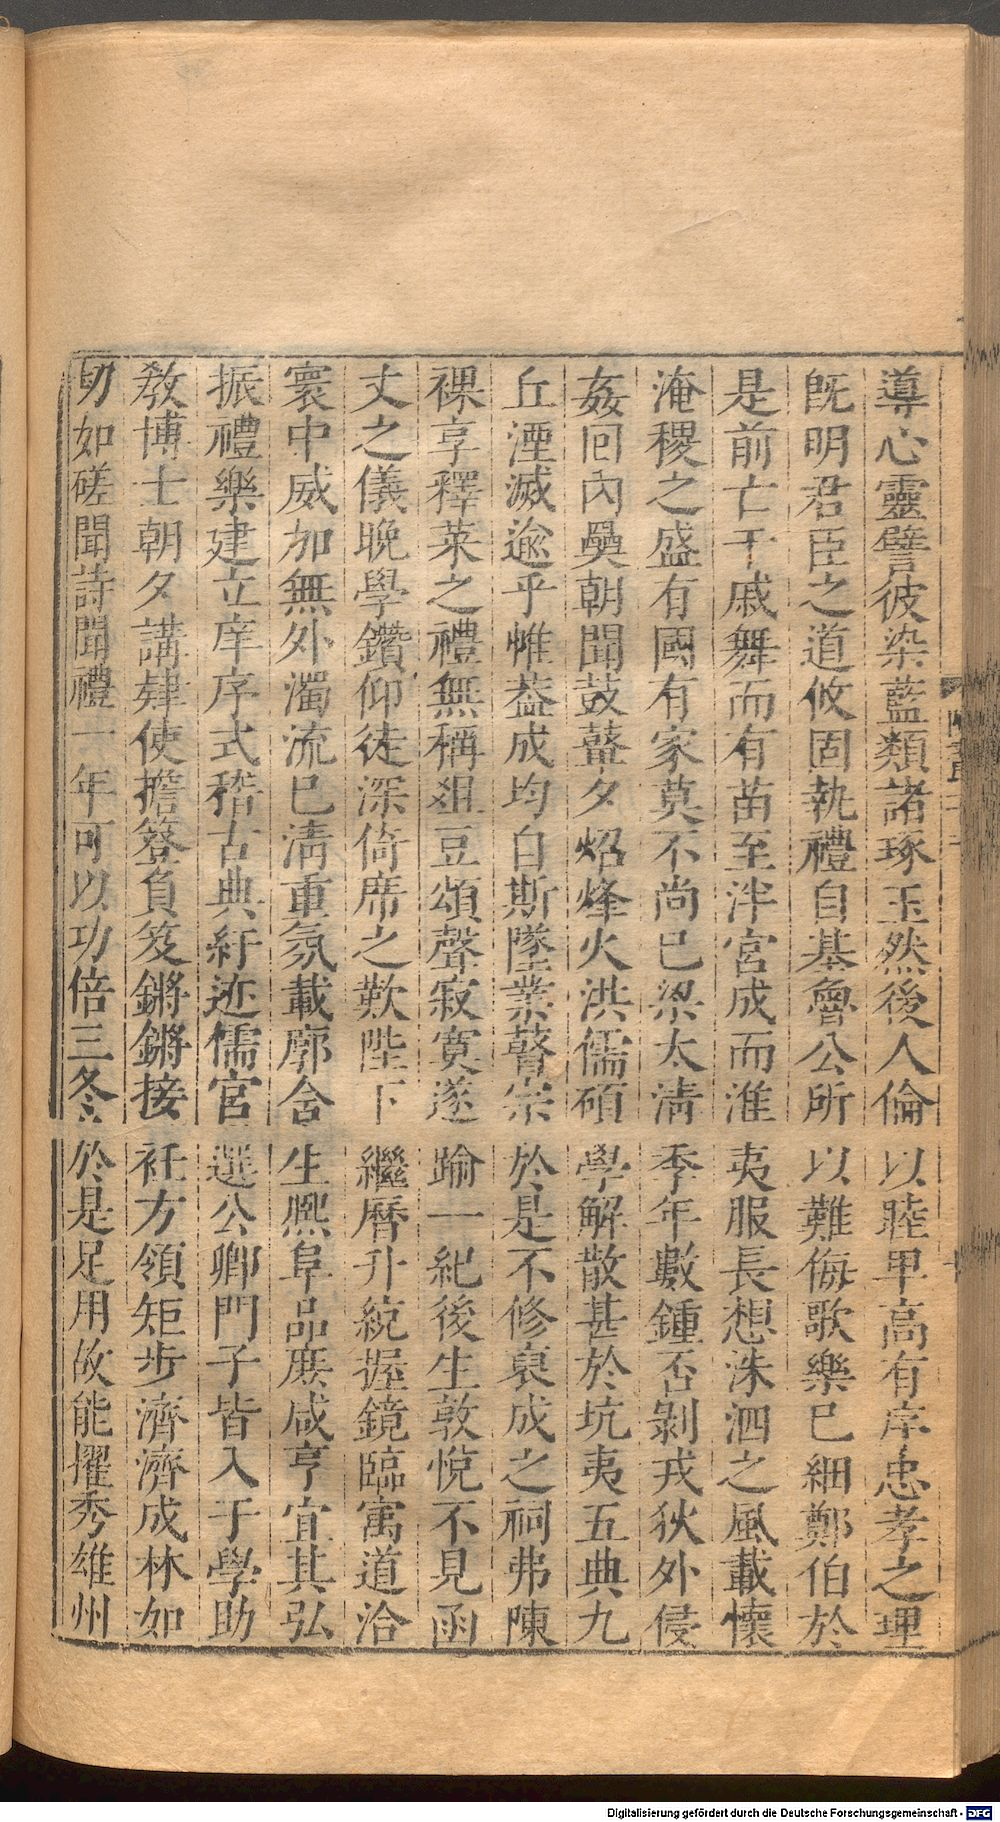 導心靈譬彼染藍類諸琢玉然後人倫以睦卑高有序忠孝之理
旣明君臣之道攸固執禮自基魯公所以難侮歌樂已細鄭伯於
是前亡干戚舞而有苗至泮宮成而淮夷服長想洙泗之風載懷
淹稷之盛有國有家莫不尚已梁太清季年數鍾否剝戎狄外侵
姦回內奰朝聞鼓鼙夕炤烽火洪儒碩學解散甚於坑夷五典九
丘湮滅逾乎帷葢成均自斯墜業瞽宗於是不修裒成之祠弗陳
祼享釋菜之禮無稱俎豆頌聲寂寞遂踰一紀後生敦悅不見函
丈之儀晚學鑽仰徒深倚席之歎陛下繼曆升統握鏡臨寓道洽
寰中威加無外濁流已清重氛載廓含生熙阜品庶咸亨宜其弘
振禮樂建立庠序式稽古典紆迹儒宮選公卿門子皆入于學助
敎博士朝夕講肄使擔簦負笈鏘鏘接衽方領矩步濟濟成林如
切如磋聞詩聞禮一年可以功倍三冬於是足用故能擢秀雄州
Digitalisierung gefördert durch die Deutsche Forschungsgemeinschaft - DFG